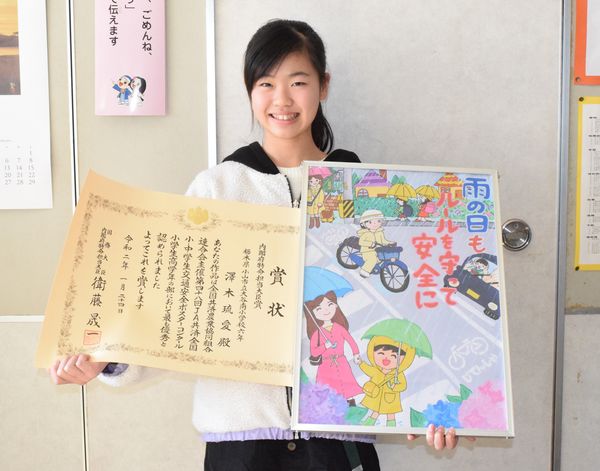 、ごめんね、
」
で伝えます
賞状
内閣府特命担当大臣賞
栃木県小山市立大谷南小学校六年
澤木琉愛殿
あなたの作品は全国共済農業協同組合
連合会主催第四十八回JA共済全国
小・中学生交通安全ポスターコンクール
小学生高学年の部において最も優秀と
認められました
よってこれを賞します
令和二年一月二十四日
内閣府特命担当大臣
衞藤晟一
雨の日も
ルールを守って
安全に